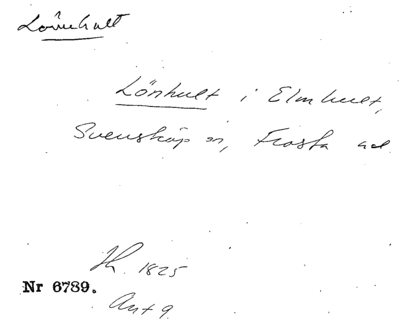 Lönhult
Lönhult i Elmhult,
Svensköp sn, Frosta hd
Hf. 1825
Nr 6789.
Ant 9